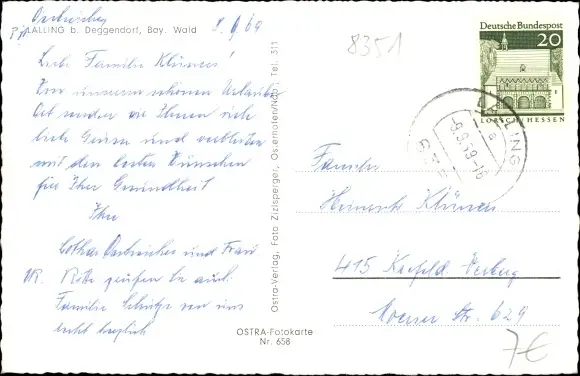 Oestreicher
LALLING b. Deggendorf, Bay. Wald
8.9.69
Liebe Familie Klünter!
Von unserem schönen Urlaubs
Ort senden wir Ihnen viele
liebe Grüsse und verbleiben
mit den besten Wünschen
für Ihre Gesundheit
Ihre
Lothar Oestreicher und Frau
NB. Bitte grüßen Sie auch
Familie von uns
recht herzlich
Ostra-Verlag, Foto Zizlsperger, Osterhofen/Ndb., Tel. 311
OSTRA-Fotokarte
Nr. 658
8351
Deutsche Bundespost
20
LORSCH HESSEN
LALLING
-9.9.69-16
8351
Familie
Heinrich Klünter
415 Krefeld
Moerser Str. 629
7€